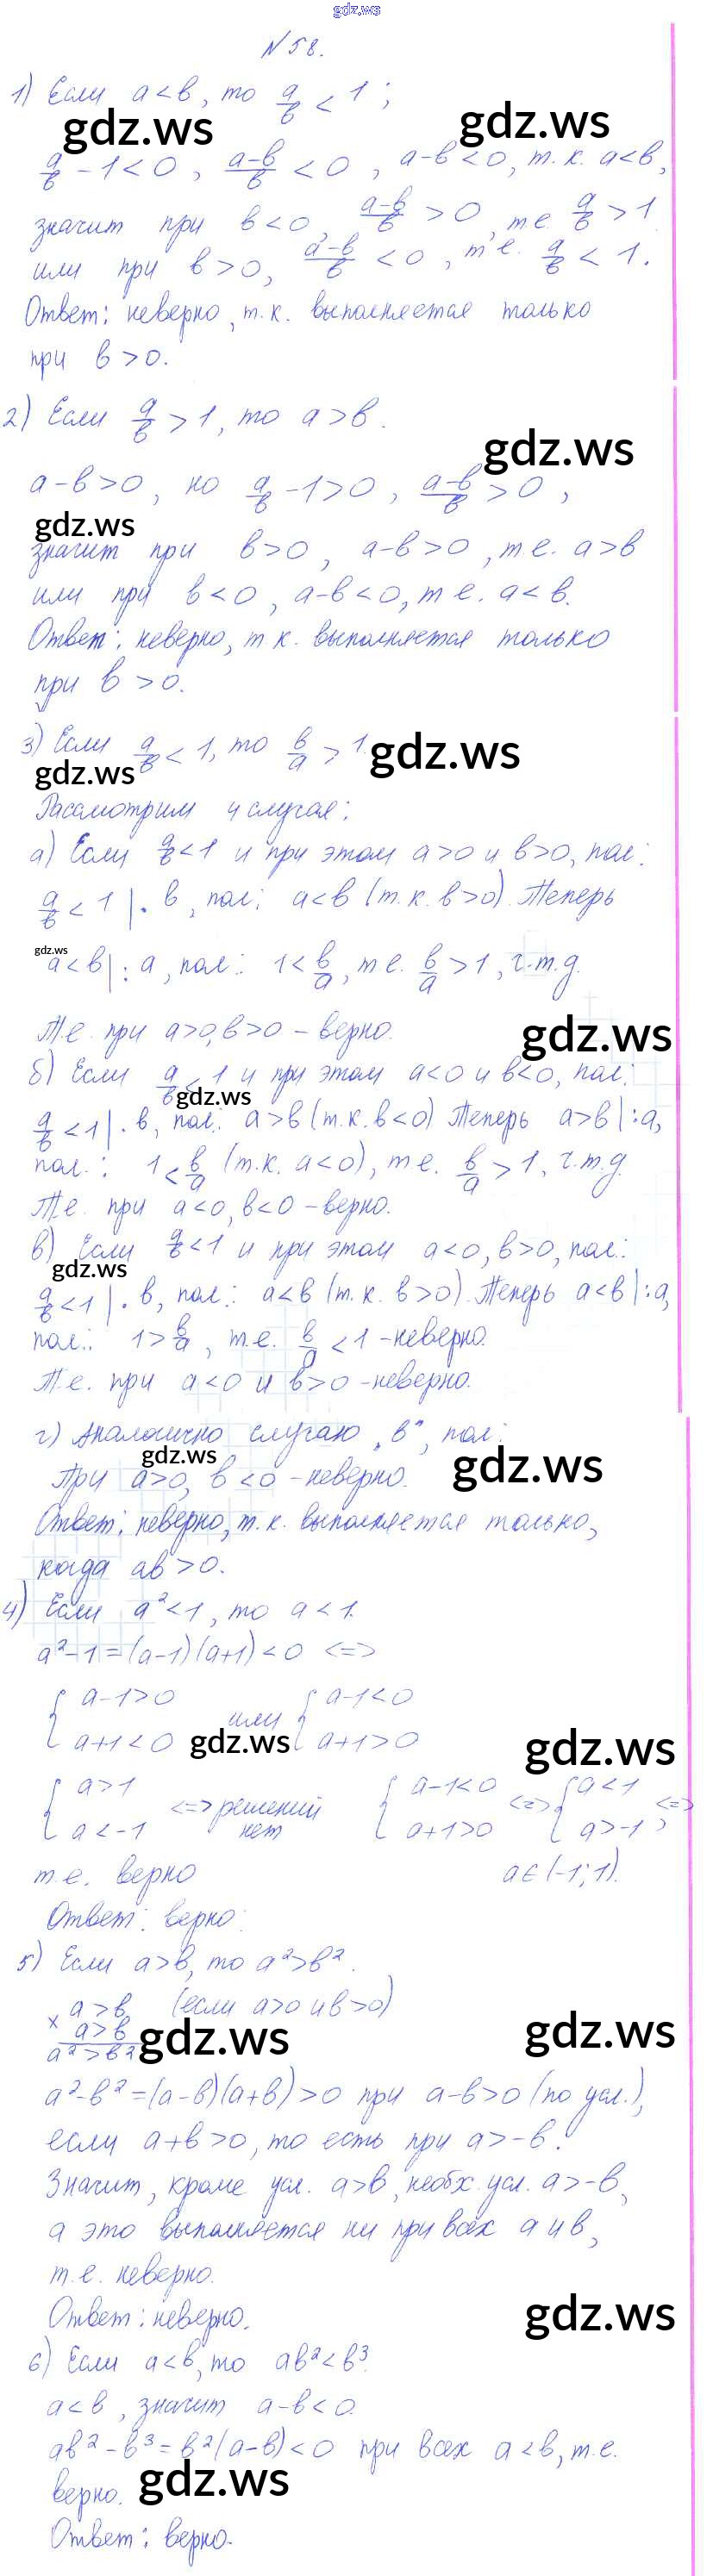 gdz.ws
N 58.
1) Если a < b, то a/b < 1;
gdz.ws gdz.ws
a/b - 1 < 0, (a-b)/b < 0, a-b < 0, т.к. a < b,
значит при b < 0, (a-b)/b > 0, т.е. a/b > 1
или при b > 0, (a-b)/b < 0, т.е. a/b < 1.
Ответ: неверно, т.к. выполняется только
при b > 0.
2) Если a/b > 1, то a > b.
gdz.ws
a-b > 0, но a/b - 1 > 0, (a-b)/b > 0,
gdz.ws
значит при b > 0, a-b > 0, т.е. a > b
или при b < 0, a-b < 0, т.е. a < b.
Ответ: неверно, т.к. выполняется только
при b > 0.
3) Если a/b < 1, то b/a > 1.
gdz.ws
gdz.ws
Рассмотрим 4 случая:
а) Если a/b < 1 и при этом a > 0 и b > 0, пол:
a/b < 1 | · b, пол: a < b (т.к. b > 0). Теперь
gdz.ws
a < b | : a, пол.: 1 < b/a, т.е. b/a > 1, ч.т.д.
Т.е. при a > 0, b > 0 – верно.
gdz.ws
б) Если a/b < 1 и при этом a < 0 и b < 0, пол:
gdz.ws
a/b < 1 | · b, пол: a > b (т.к. b < 0) Теперь a > b | : a,
пол.: 1 < b/a (т.к. a < 0), т.е. b/a > 1, ч.т.д.
Т.е. при a < 0, b < 0 – верно.
в) Если a/b < 1 и при этом a < 0, b > 0, пол:
gdz.ws
a/b < 1 | · b, пол.: a < b (т.к. b > 0). Теперь a < b | : a,
пол.: 1 > b/a, т.е. b/a < 1 – неверно.
Т.е. при a < 0 и b > 0 – неверно.
г) Аналогично случаю „в", пол:
gdz.ws gdz.ws
При a > 0, b < 0 – неверно.
Ответ: неверно, т.к. выполняется только,
когда ab > 0.
4) Если a² < 1, то a < 1.
a² - 1 = (a-1)(a+1) < 0 <=>
{ a-1 > 0 { a-1 < 0
или
{ a+1 < 0 { a+1 > 0
gdz.ws gdz.ws
{ a > 1 <=> решений { a-1 < 0 <=> { a < 1 <=>
{ a < -1 нет { a+1 > 0 { a > -1,
т.е. верно a ∈ (-1; 1).
Ответ: верно.
5) Если a > b, то a² > b².
× a > b (если a > 0 и b > 0)
a > b
gdz.ws gdz.ws
a² > b²
a² - b² = (a-b)(a+b) > 0 при a-b > 0 (по усл.),
если a+b > 0, то есть при a > -b.
Значит, кроме усл. a > b, необх. усл. a > -b,
а это выполняется ни при всех a и b,
т.е. неверно.
Ответ: неверно.
gdz.ws
6) Если a < b, то ab² < b³.
a < b, значит a-b < 0.
ab² - b³ = b²(a-b) < 0 при всех a < b, т.е.
верно.
gdz.ws
Ответ: верно.